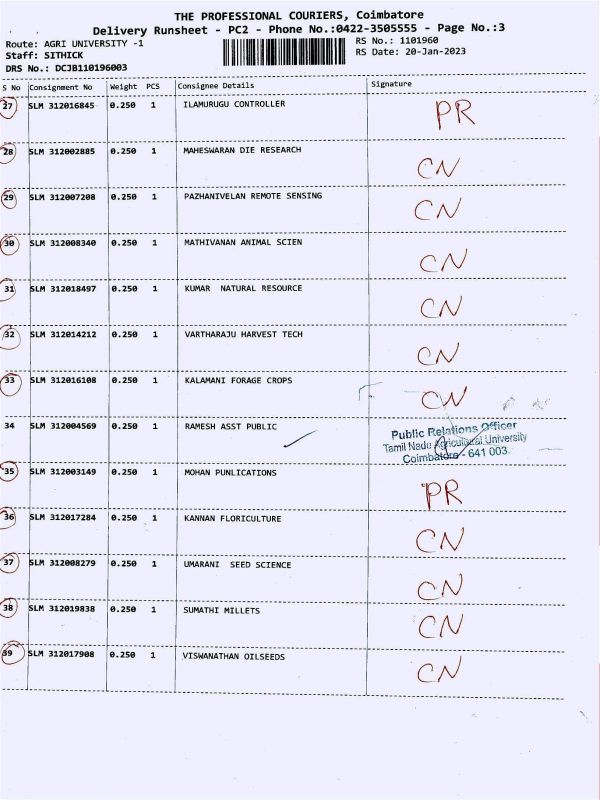 THE PROFESSIONAL COURIERS, Coimbatore
Delivery Runsheet - PC2 - Phone No.:0422-3505555 - Page No.:3
Route: AGRI UNIVERSITY -1
RS No.: 1101960
Staff: SITHICK
RS Date: 20-Jan-2023
DRS No.: DCJB110196003
S No Consignment No Weight PCS Consignee Details Signature
27 SLM 312016845 0.250 1 ILAMURUGU CONTROLLER PR
28 SLM 312002885 0.250 1 MAHESWARAN DIE RESEARCH CN
29 SLM 312007208 0.250 1 PAZHANIVELAN REMOTE SENSING CN
30 SLM 312008340 0.250 1 MATHIVANAN ANIMAL SCIEN CN
31 SLM 312018497 0.250 1 KUMAR NATURAL RESOURCE CN
32 SLM 312014212 0.250 1 VARTHARAJU HARVEST TECH CN
33 SLM 312016108 0.250 1 KALAMANI FORAGE CROPS CN
34 SLM 312004569 0.250 1 RAMESH ASST PUBLIC
Public Relations Officer
Tamil Nadu Agricultural University
Coimbatore - 641 003.
35 SLM 312003149 0.250 1 MOHAN PUNLICATIONS PR
36 SLM 312017284 0.250 1 KANNAN FLORICULTURE CN
37 SLM 312008279 0.250 1 UMARANI SEED SCIENCE CN
38 SLM 312019838 0.250 1 SUMATHI MILLETS CN
39 SLM 312017908 0.250 1 VISWANATHAN OILSEEDS CN